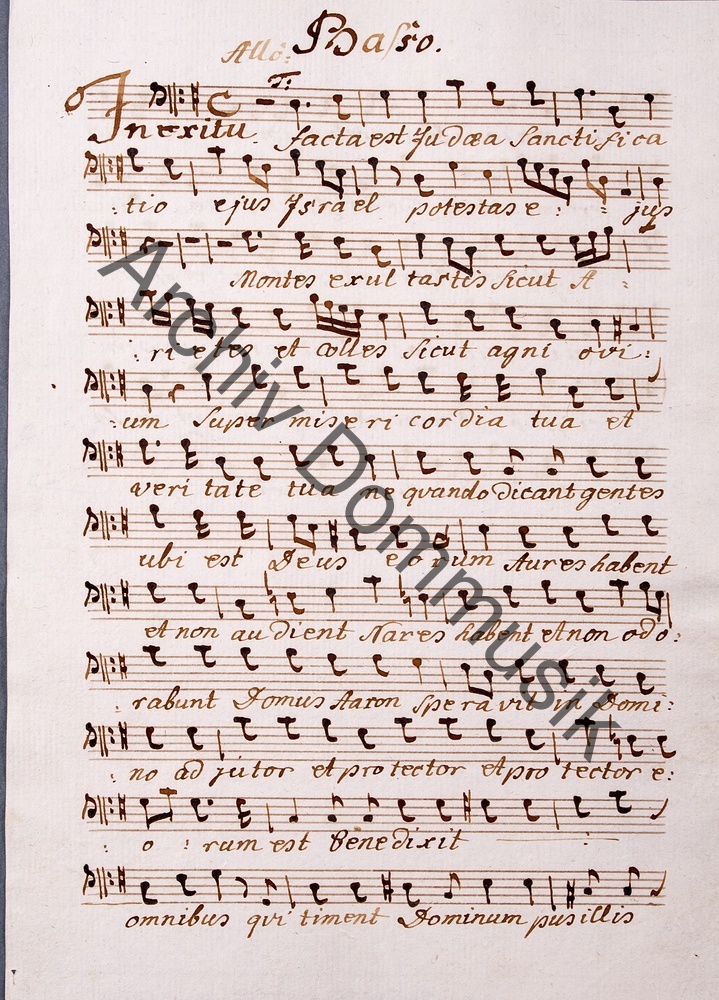 Allo: Basso.
T:
In exitu. facta est Judæa Sanctifica
: tio ejus Israel potestas e : : jus
Montes exul tastis sicut A :
: ri etes et Colles sicut agni ovi :
: um super mise ri cordia tua et
veri tate tua ne quando dicant gentes
ubi est Deus eorum Aures habent
et non au dient Nares habent et non odo :
rabunt Domus Aaron speravit in Domi :
: no ad jutor et pro tector et pro tector e :
o : rum est Benedixit :
omnibus qui timent Dominum pusillis
Archiv Dommusik